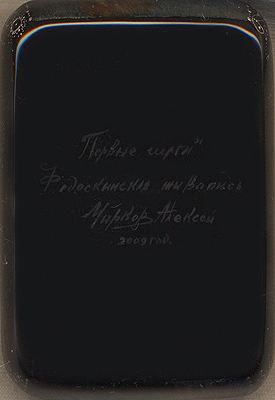 "Первые шаги"
Федоскинская живопись
Алексей
2009 год.